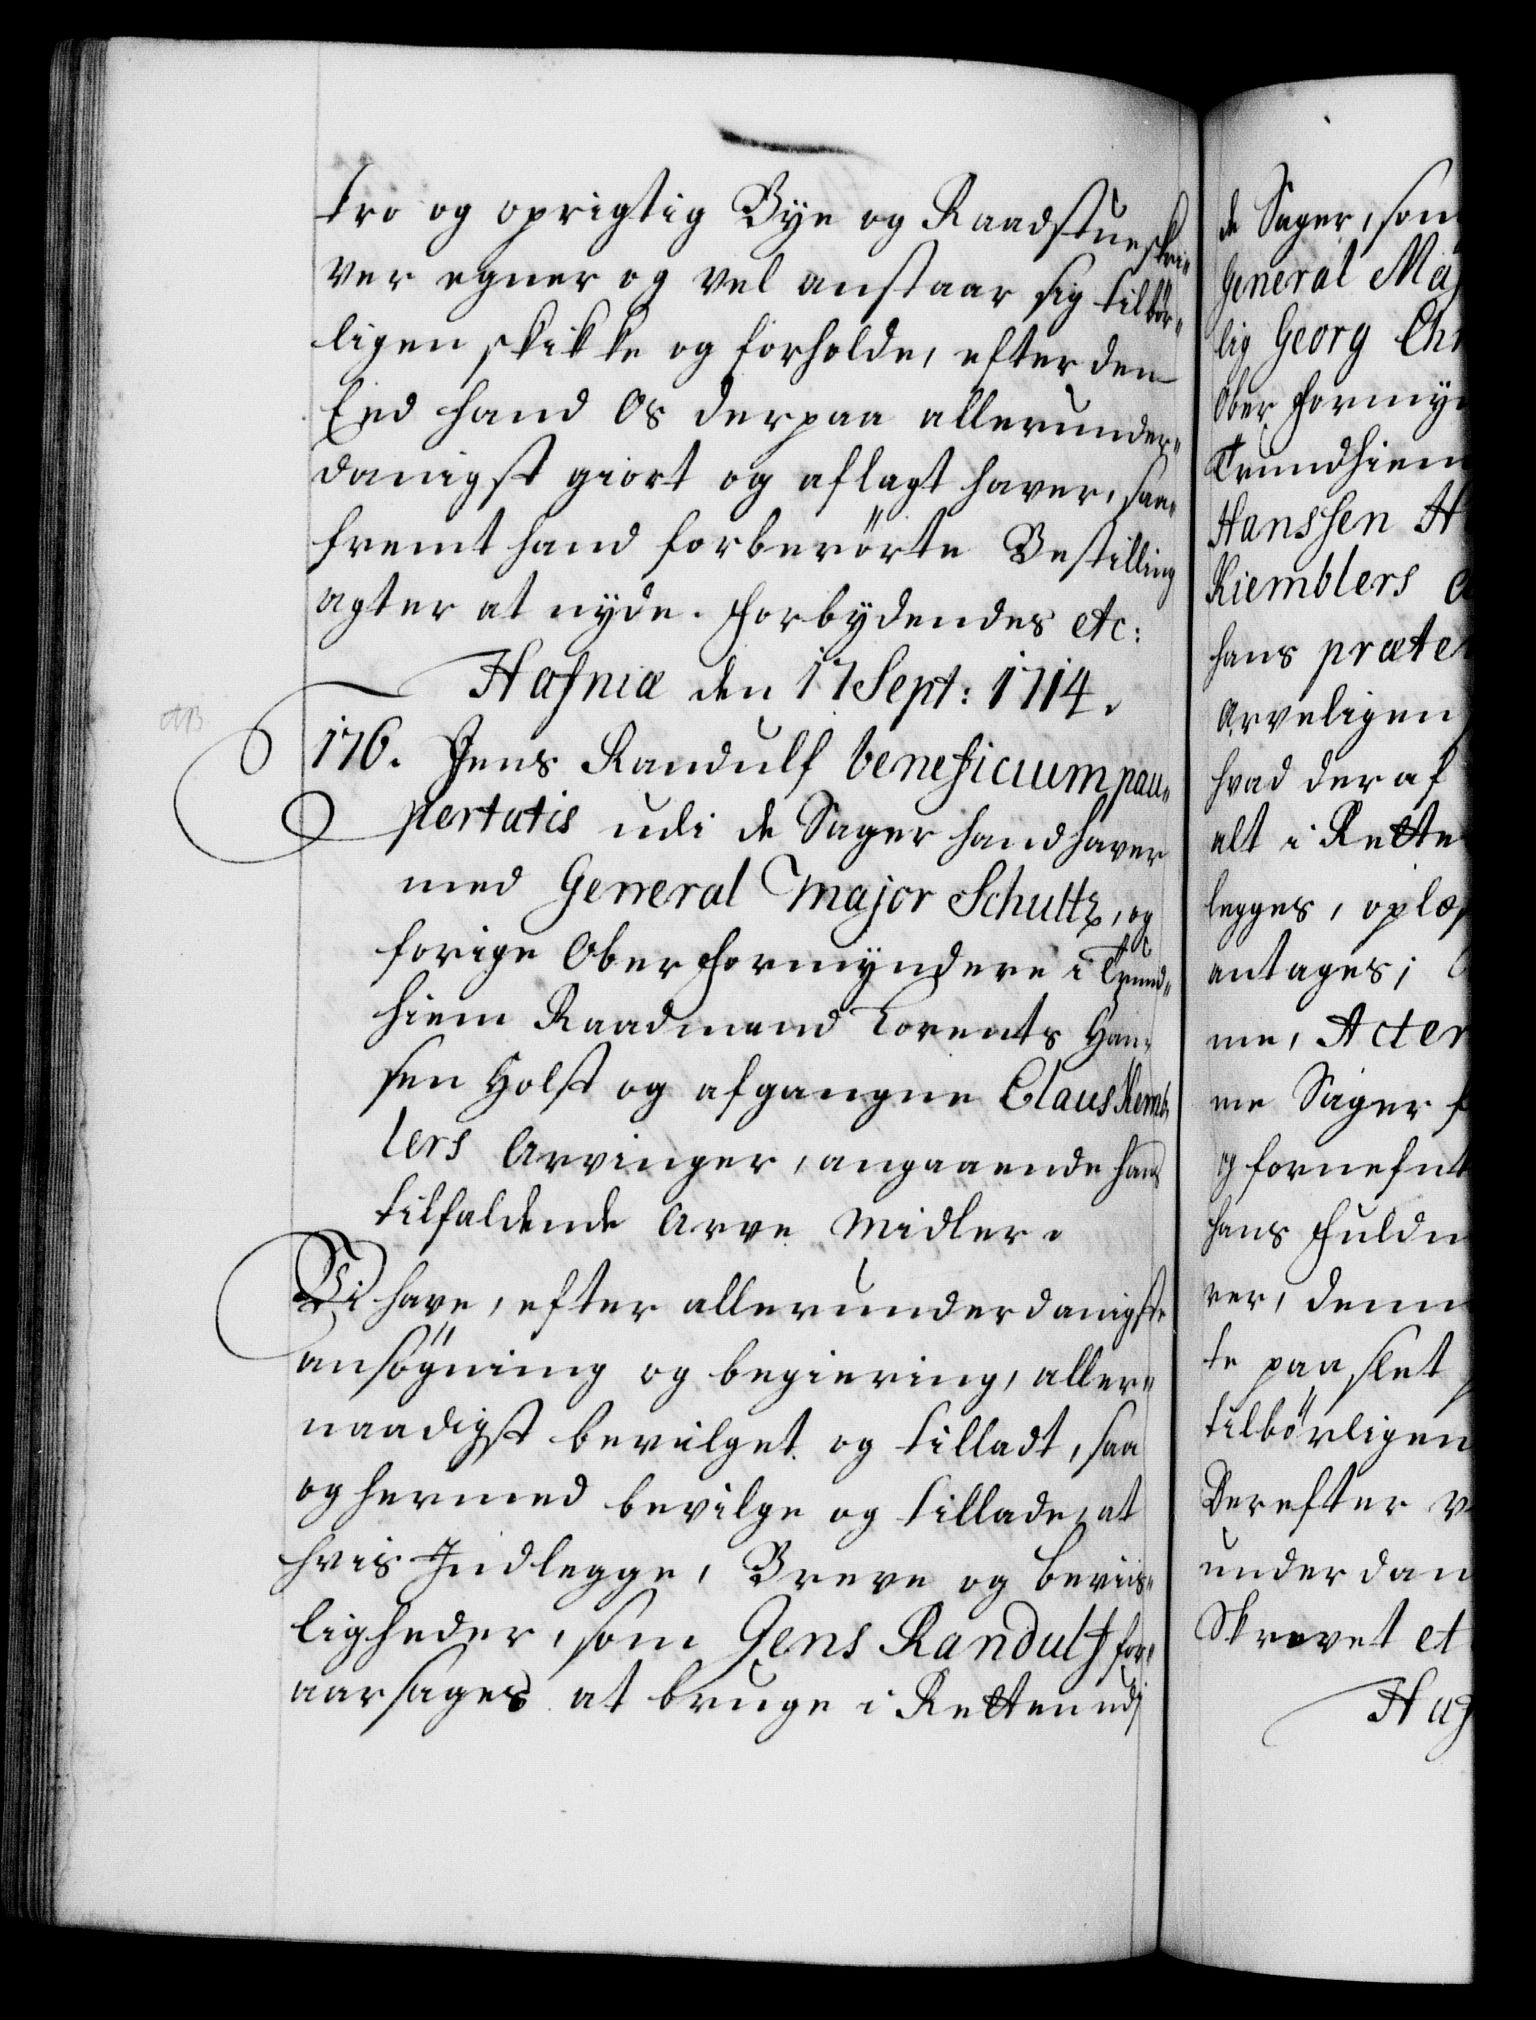 tro og oprigtig Bye og Raadstueskri„
ver egner og vel anstaar sig tilbör„
ligen skikke og forholde, efter den
Eed hand Os derpaa allerunder„
danigst giort og aflagt haver, saa„
fremt hand forberörte Bestilling
agter at nyde. Forbydendes etc:
Hafniæ den 17 Sept: 1714.
176. Jens Randulf beneficium pau„
pertatis udi de Sager hand haver
med General Major Schultz, og
forige Ober Formyndere i Trund„
hiem Raadmand Lorents Han„
sen Holst og afgangne Claus Kemb„
lers Arvinger, angaaende hans
tilfaldende Arve Midler.
Vi have, efter allerunderdanigste
ansögning og begiering, aller„
naadigst bevilget og tilladt, saa
og hermed bevilge og tillade, at
hvis Indlegge, Breve og beviis„
ligheder, som Jens Randulf for„
aarsages at bruge i Retten udj
de Sager, som
General Maj
lig Georg Chr
Ober Formyn
Trundhiem
Hanssen H
Kiemblers A
hans præte
Arveligen
hvad der af
alt i Rette
legges, oplæs
antages;
me, Acter
me Sager f
og fornefnt
hans Fuldm
ver, denn
te paa slet
tilbörligen
Derefter v
underdan
Skrevet et
Haf